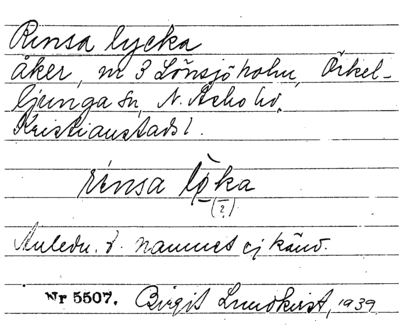 Rinsa lycka
åker, nr 3 Lönsjöholm, Örkel-
ljunga sn, N. Åsbo hd,
Kristianstads l.
rinsa lø̄ka
(?)
Anledn. t. namnet ej känd.
Nr 5507. Birgit Lundkvist, 1939